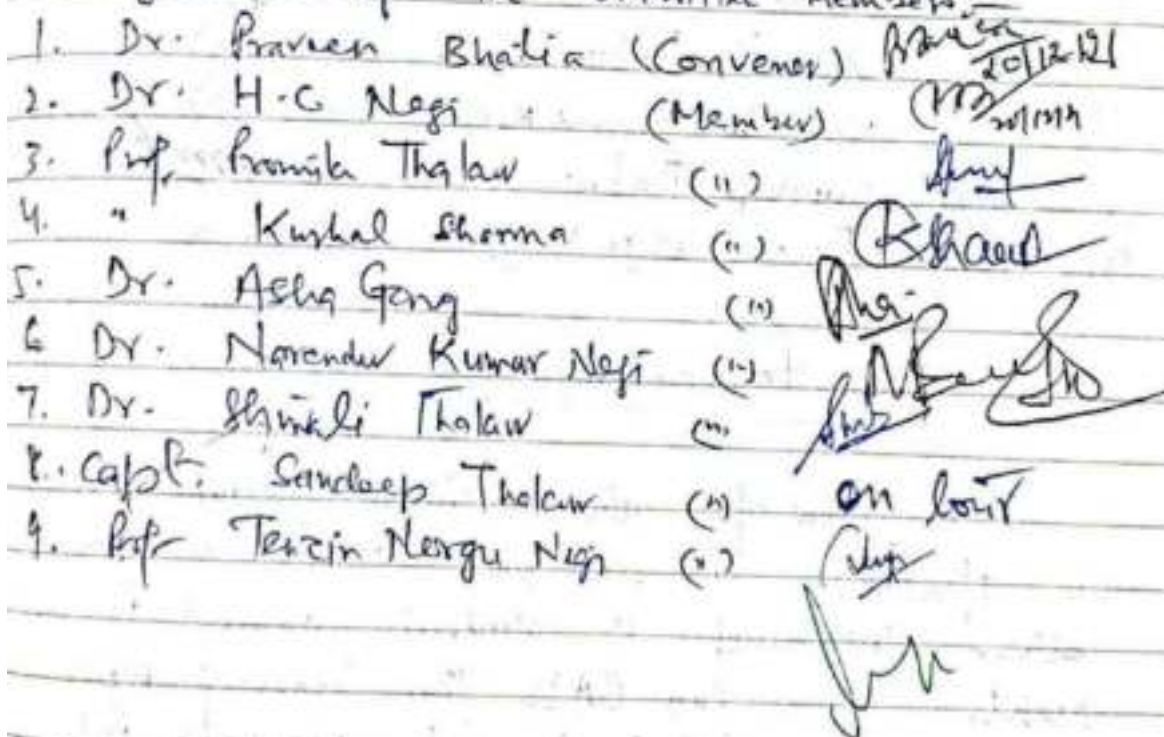 Members:-
1. Dr. Praveen Bhatia (Convener) 20/12/21
2. Dr. H.C Negi (Member).
3. Prof. Promila Thalaur (")
4. " Kushal Sharma (")
5. Dr. Asha Gong (")
6 Dr. Narender Kumar Negi (")
7. Dr. Thalaur (")
8. Capt. Sandeep Thalaur (") on tour
9. Prof Tenzin Negi (")